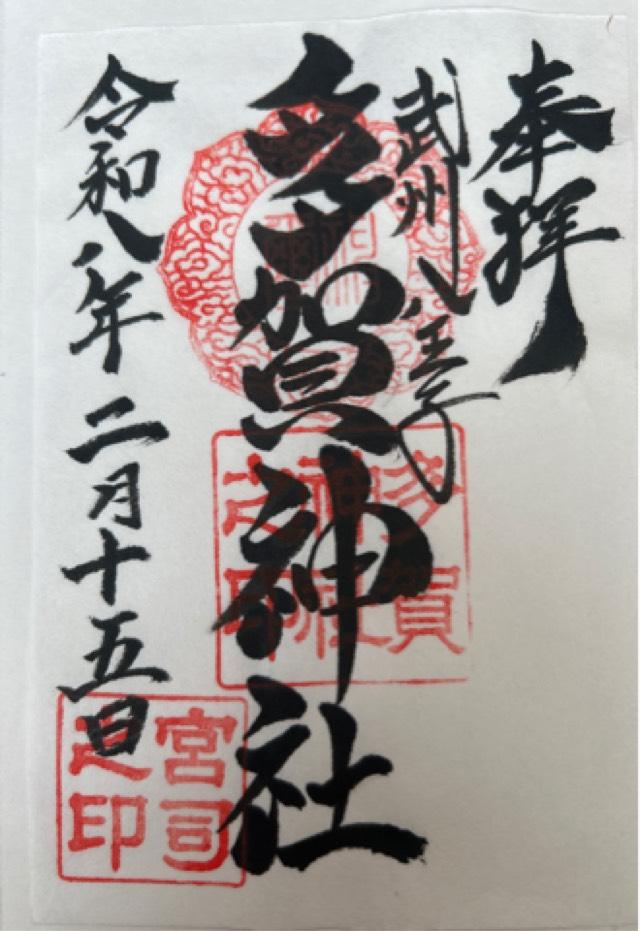 奉拝
武州八王子
多賀神社
多賀神社之印
令和八年二月十五日
宮司之印